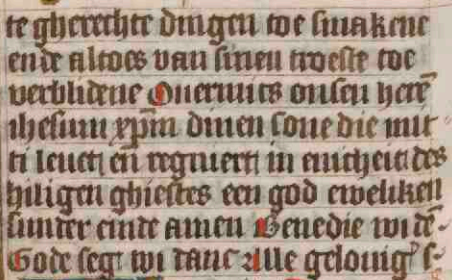 te gherechte dingen toe smakene
ende altoes van sinen troeste toe
verblidene Ouermits onsen herē
ihesum xp̄m dinen sone die mit
ti leuet en regniert in enicheit des
hiligen ghiestes een god eweliken
sunter einde amen Benedie wi dē
Gode segt wi danc Alle gelouig